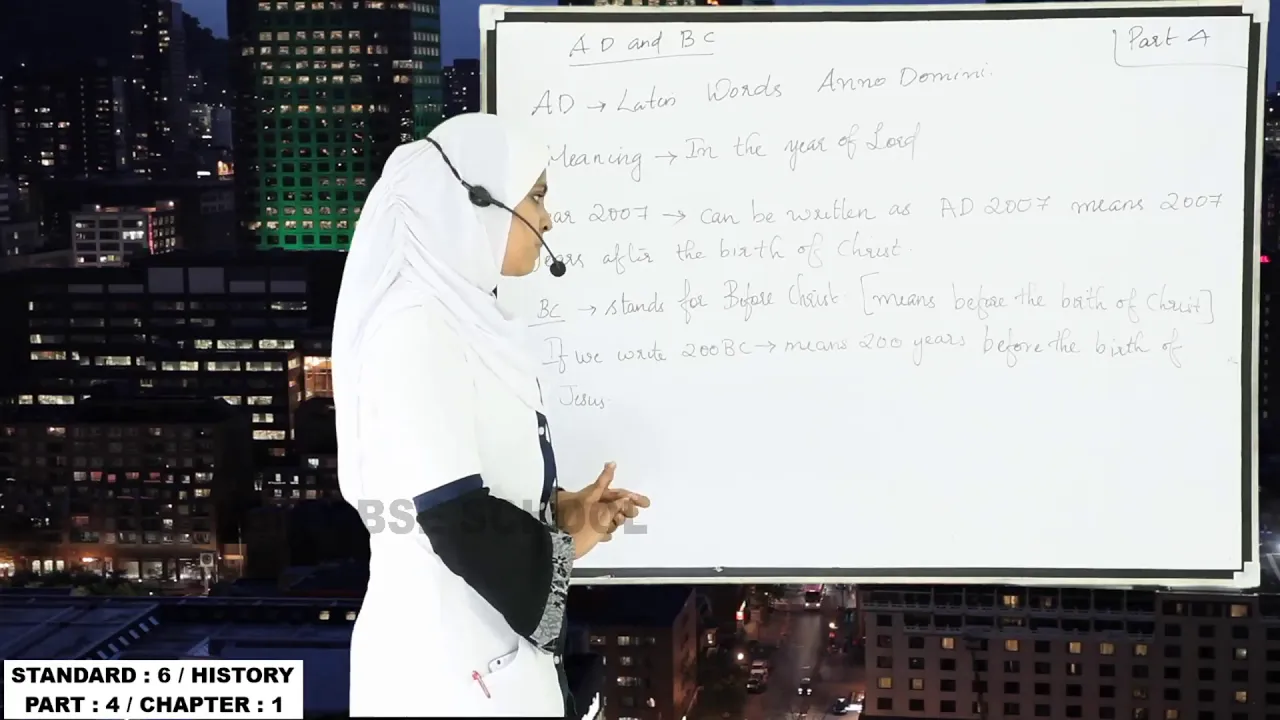 AD and BC
Part 4
AD → Latin Words Anno Domini.
Meaning → In the year of Lord
2007 → can be written as AD 2007 means 2007
after the birth of Christ.
BC → stands for Before Christ. [means before the birth of Christ]
If we write 200BC → means 200 years before the birth of
Jesus.
BSE SCHOOL
STANDARD : 6 / HISTORY
PART : 4 / CHAPTER : 1